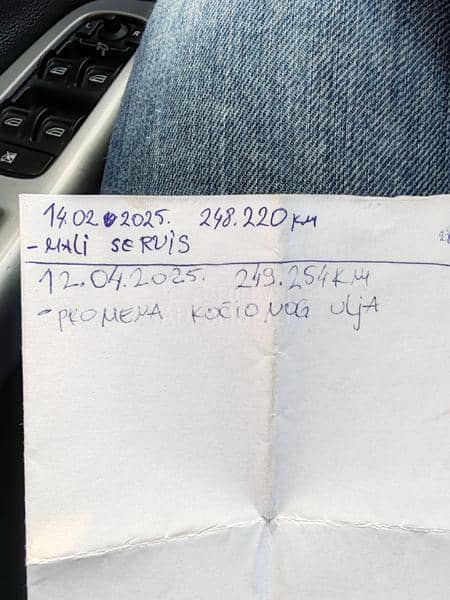 14.02.2025. 248.220 KM
- MALI SERVIS
12.04.2025. 249.254 KM
- PROMENA KOČIONOG ULJA